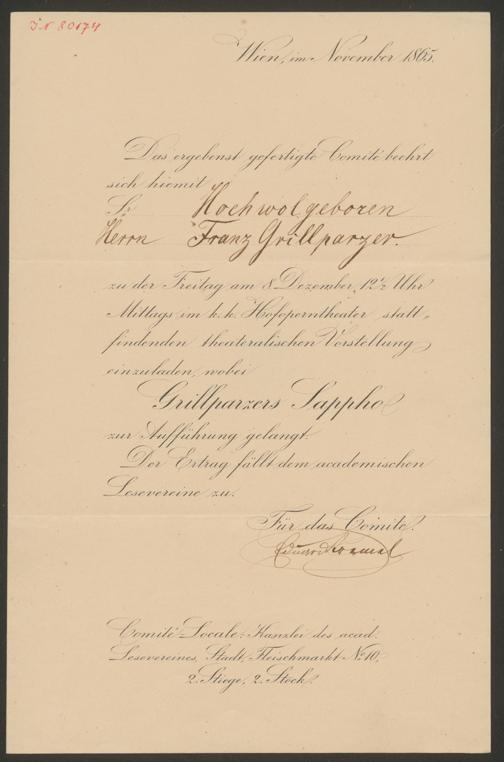 I.N 80174
Wien, im November 1865.
Das ergebenst gefertigte Comité beehrt
sich hiemit
Sr Hochwolgeboren
Herrn Franz Grillparzer.
zu der Freitag am 8 Dezember, 12½ Uhr
Mittags im k. k. Hofoperntheater statt-
findenden theateralischen Vorstellung
einzuladen, wobei
Grillparzers Sappho
zur Aufführung gelangt.
Der Ertrag fällt dem academischen
Lesevereine zu.
Für das Comite.
Comité-Locale: Kanzlei des acad.
Lesevereines, Stadt, Fleischmarkt No 10,
2. Stiege, 2. Stock.